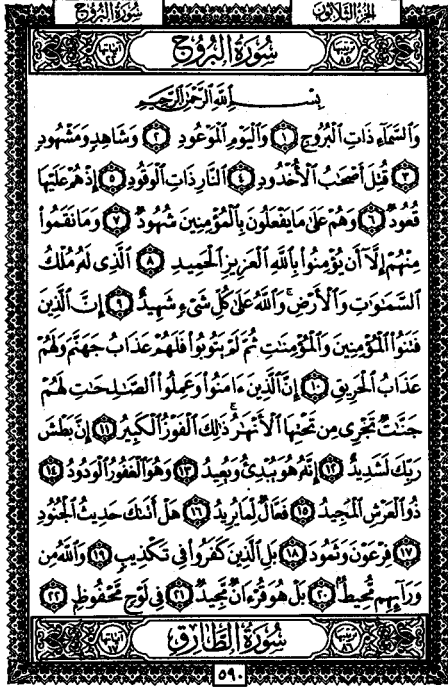 سُورَةُ البُرُوجِ
الجُزْءُ الثَّلَاثُونَ
آيَاتُهَا ٢٢
سُورَةُ البُرُوجِ
تَرْتِيبُهَا ٨٥
بِسْمِ ٱللَّهِ ٱلرَّحْمَٰنِ ٱلرَّحِيمِ
وَٱلسَّمَآءِ ذَاتِ ٱلْبُرُوجِ ١ وَٱلْيَوْمِ ٱلْمَوْعُودِ ٢ وَشَاهِدٍ وَمَشْهُودٍ
٣ قُتِلَ أَصْحَٰبُ ٱلْأُخْدُودِ ٤ ٱلنَّارِ ذَاتِ ٱلْوَقُودِ ٥ إِذْ هُمْ عَلَيْهَا
قُعُودٌ ٦ وَهُمْ عَلَىٰ مَا يَفْعَلُونَ بِٱلْمُؤْمِنِينَ شُهُودٌ ٧ وَمَا نَقَمُوا۟
مِنْهُمْ إِلَّآ أَن يُؤْمِنُوا۟ بِٱللَّهِ ٱلْعَزِيزِ ٱلْحَمِيدِ ٨ ٱلَّذِى لَهُۥ مُلْكُ
ٱلسَّمَٰوَٰتِ وَٱلْأَرْضِ ۚ وَٱللَّهُ عَلَىٰ كُلِّ شَىْءٍ شَهِيدٌ ٩ إِنَّ ٱلَّذِينَ
فَتَنُوا۟ ٱلْمُؤْمِنِينَ وَٱلْمُؤْمِنَٰتِ ثُمَّ لَمْ يَتُوبُوا۟ فَلَهُمْ عَذَابُ جَهَنَّمَ وَلَهُمْ
عَذَابُ ٱلْحَرِيقِ ١٠ إِنَّ ٱلَّذِينَ ءَامَنُوا۟ وَعَمِلُوا۟ ٱلصَّٰلِحَٰتِ لَهُمْ
جَنَّٰتٌ تَجْرِى مِن تَحْتِهَا ٱلْأَنْهَٰرُ ۚ ذَٰلِكَ ٱلْفَوْزُ ٱلْكَبِيرُ ١١ إِنَّ بَطْشَ
رَبِّكَ لَشَدِيدٌ ١٢ إِنَّهُۥ هُوَ يُبْدِئُ وَيُعِيدُ ١٣ وَهُوَ ٱلْغَفُورُ ٱلْوَدُودُ ١٤
ذُو ٱلْعَرْشِ ٱلْمَجِيدُ ١٥ فَعَّالٌ لِّمَا يُرِيدُ ١٦ هَلْ أَتَىٰكَ حَدِيثُ ٱلْجُنُودِ
١٧ فِرْعَوْنَ وَثَمُودَ ١٨ بَلِ ٱلَّذِينَ كَفَرُوا۟ فِى تَكْذِيبٍ ١٩ وَٱللَّهُ مِن
وَرَآئِهِم مُّحِيطٌ ٢٠ بَلْ هُوَ قُرْءَانٌ مَّجِيدٌ ٢١ فِى لَوْحٍ مَّحْفُوظٍ ٢٢
تَرْتِيبُهَا ٨٦
سُورَةُ الطَّارِقِ
آيَاتُهَا ١٧
٥٩٠